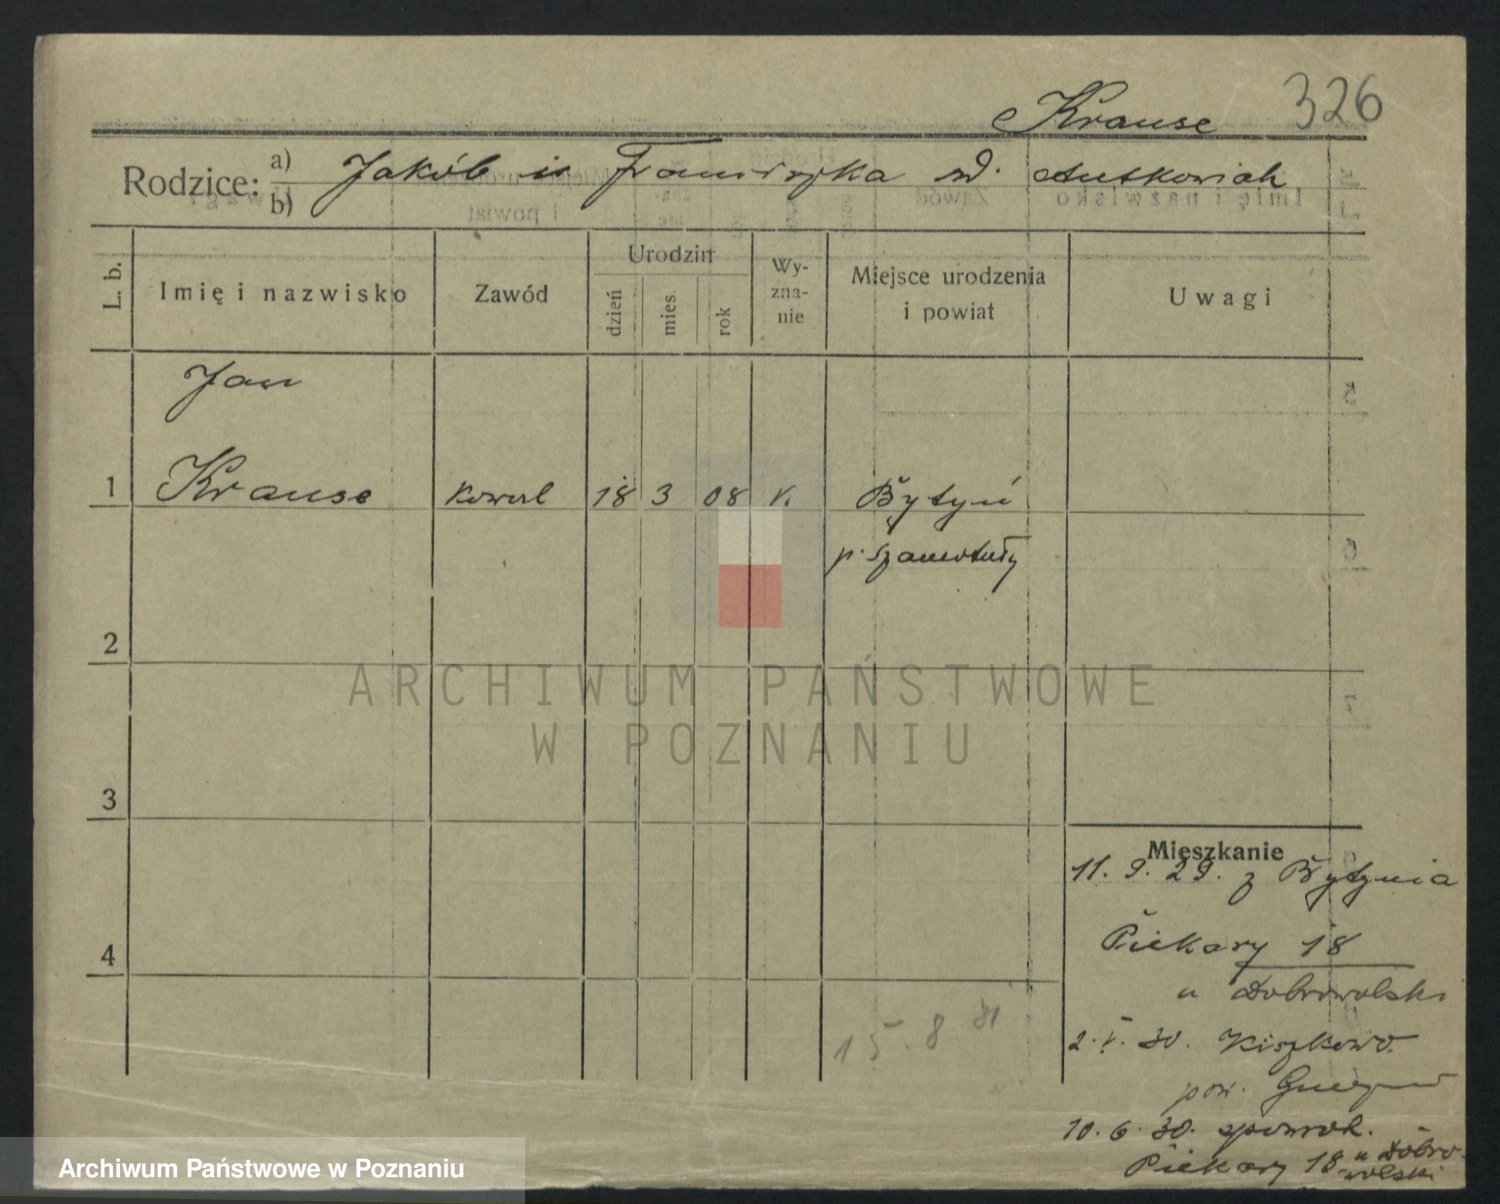 326
Krause
Rodzice: a) Jakób i Franciszka d. Antkowiak
b)
L. b. Imię i nazwisko Zawód Urodzin dzień mies. rok Wy-zna-nie Miejsce urodzenia i powiat Uwagi
Jan
1 Krause kowal 18 3 08 r. Bytyń
p. Szamotuły
2
ARCHIWUM PAŃSTWOWE
W POZNANIU
3
Mieszkanie
11. 9. 29. z Bytynia
4
Piekary 18
u Dobrowolski
15. 8 31
2. V. 30. Kiszkowo
pow. Gniezno
10. 6. 30. spowrot.
Piekary 18 u Dobro-
wolski
Archiwum Państwowe w Poznaniu